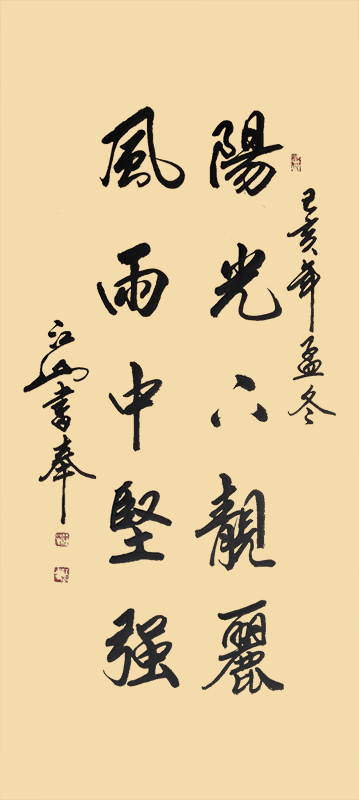 己亥年孟冬
陽光下靚麗
風雨中堅强
江山書奉